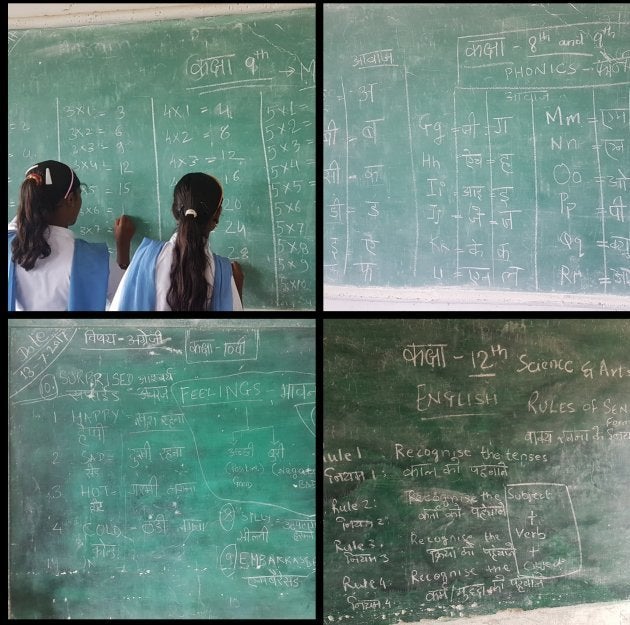 कक्षा 9th →
3×1 = 3
3×2 = 6
3×3 = 9
3×4 = 12
15
×6 =
×7 =
4×1 = 4
4×2 = 8
4×3 = 12
16
20
24
28
5×1 =
5×2 =
5×3 =
5×4 =
5×5 =
5×6 =
5×7 =
5×8
5×9
आवाज
कक्षा - 8th and 9th
PHONICS -
आवाज
= अ
= ब
= क
डी = ड
= ए
= फ
Gg = जी = ग
Hh = ऐच = ह
Ii = आइ = इ
Jj = जे = ज
Kk = के = क
Ll = एल = ल
Mm = एम
Nn = एन
Oo = ओ
Pp = पी
Qq = क्यू
Rr =
Date
13-7-2017
विषय - अंग्रेजी
कक्षा - 10वी
10) SURPRISED
FEELINGS -
1 HAPPY - खुश रहना
हैप्पी
2 SAD - दुखी रहना
सैड
3. HOT - गरमी लगना
हॉट
4 COLD - ठंडी लगना
कोल्ड
8 SILLY
सिल्ली
9) EMBARRASS
एमबैरेसड
कक्षा - 12th Science & Arts
ENGLISH RULES OF SEN
वाक्य रचना के नियम
Rule 1 Recognise the tenses
नियम 1: काल को पहचाने
Rule 2: Recognise the Subject
नियम 2: कर्ता को पहचाने +
Rule 3: Recognise the Verb
नियम 3 क्रिया को पहचाने +
Rule 4: Recognise the Object
नियम 4 को पहचाने